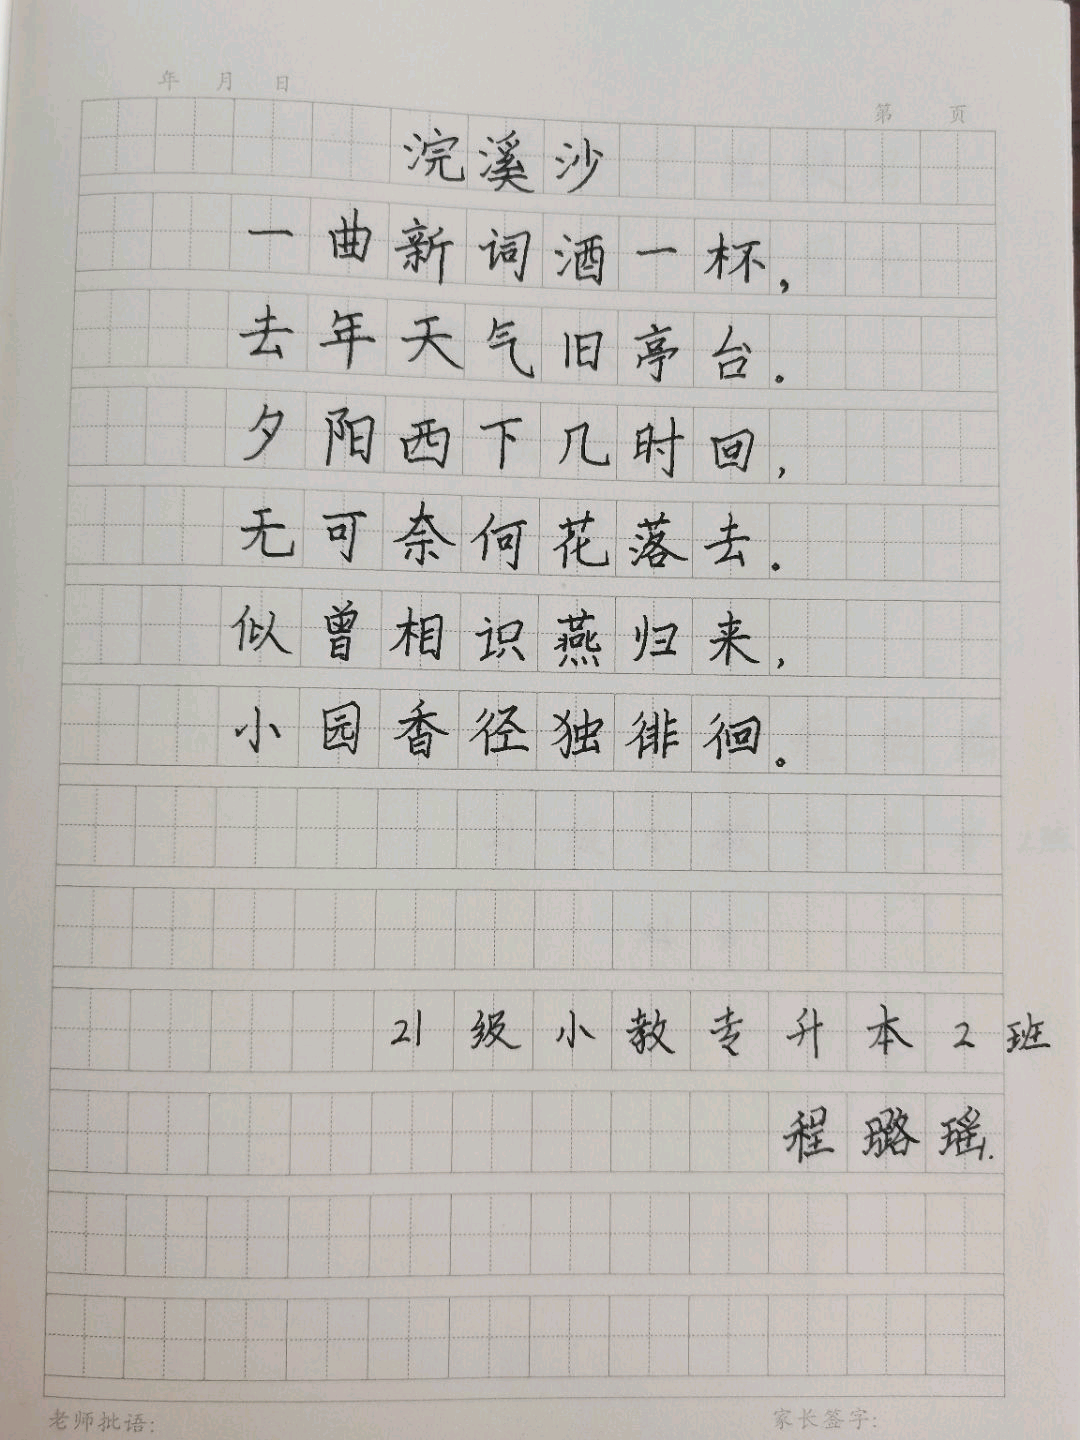 年 月 日
第 页
浣溪沙
一曲新词酒一杯，
去年天气旧亭台。
夕阳西下几时回，
无可奈何花落去。
似曾相识燕归来，
小园香径独徘徊。
21级小教专升本2班
程璐瑶.
老师批语:
家长签字: